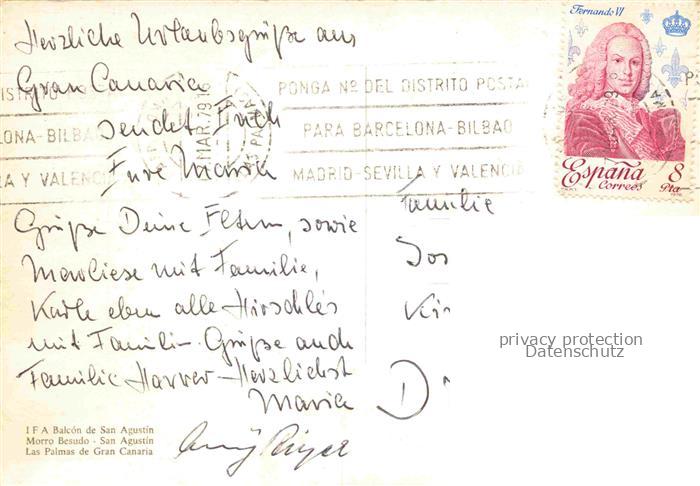 Herzliche Urlaubsgrüße aus
Gran Canaria
sendet Euch
Eure Maria
Grüße Deine Eltern, sowie
Marliese mit Familie,
eben alle Hirschles
mit Famili. Grüße auch
Familie Harrer – Herzlichst
Maria
I F A Balcón de San Agustín
Morro Besudo - San Agustín
Las Palmas de Gran Canaria
PONGA Nº DEL DISTRITO POSTA
PARA BARCELONA-BILBAO
MADRID-SEVILLA Y VALENCI
LONA-BILBA
A Y VALENCI
MAR.79
Fernando VI
España
Correos
8
Pta
Familie
Jos
Kir
D
privacy protection
Datenschutz